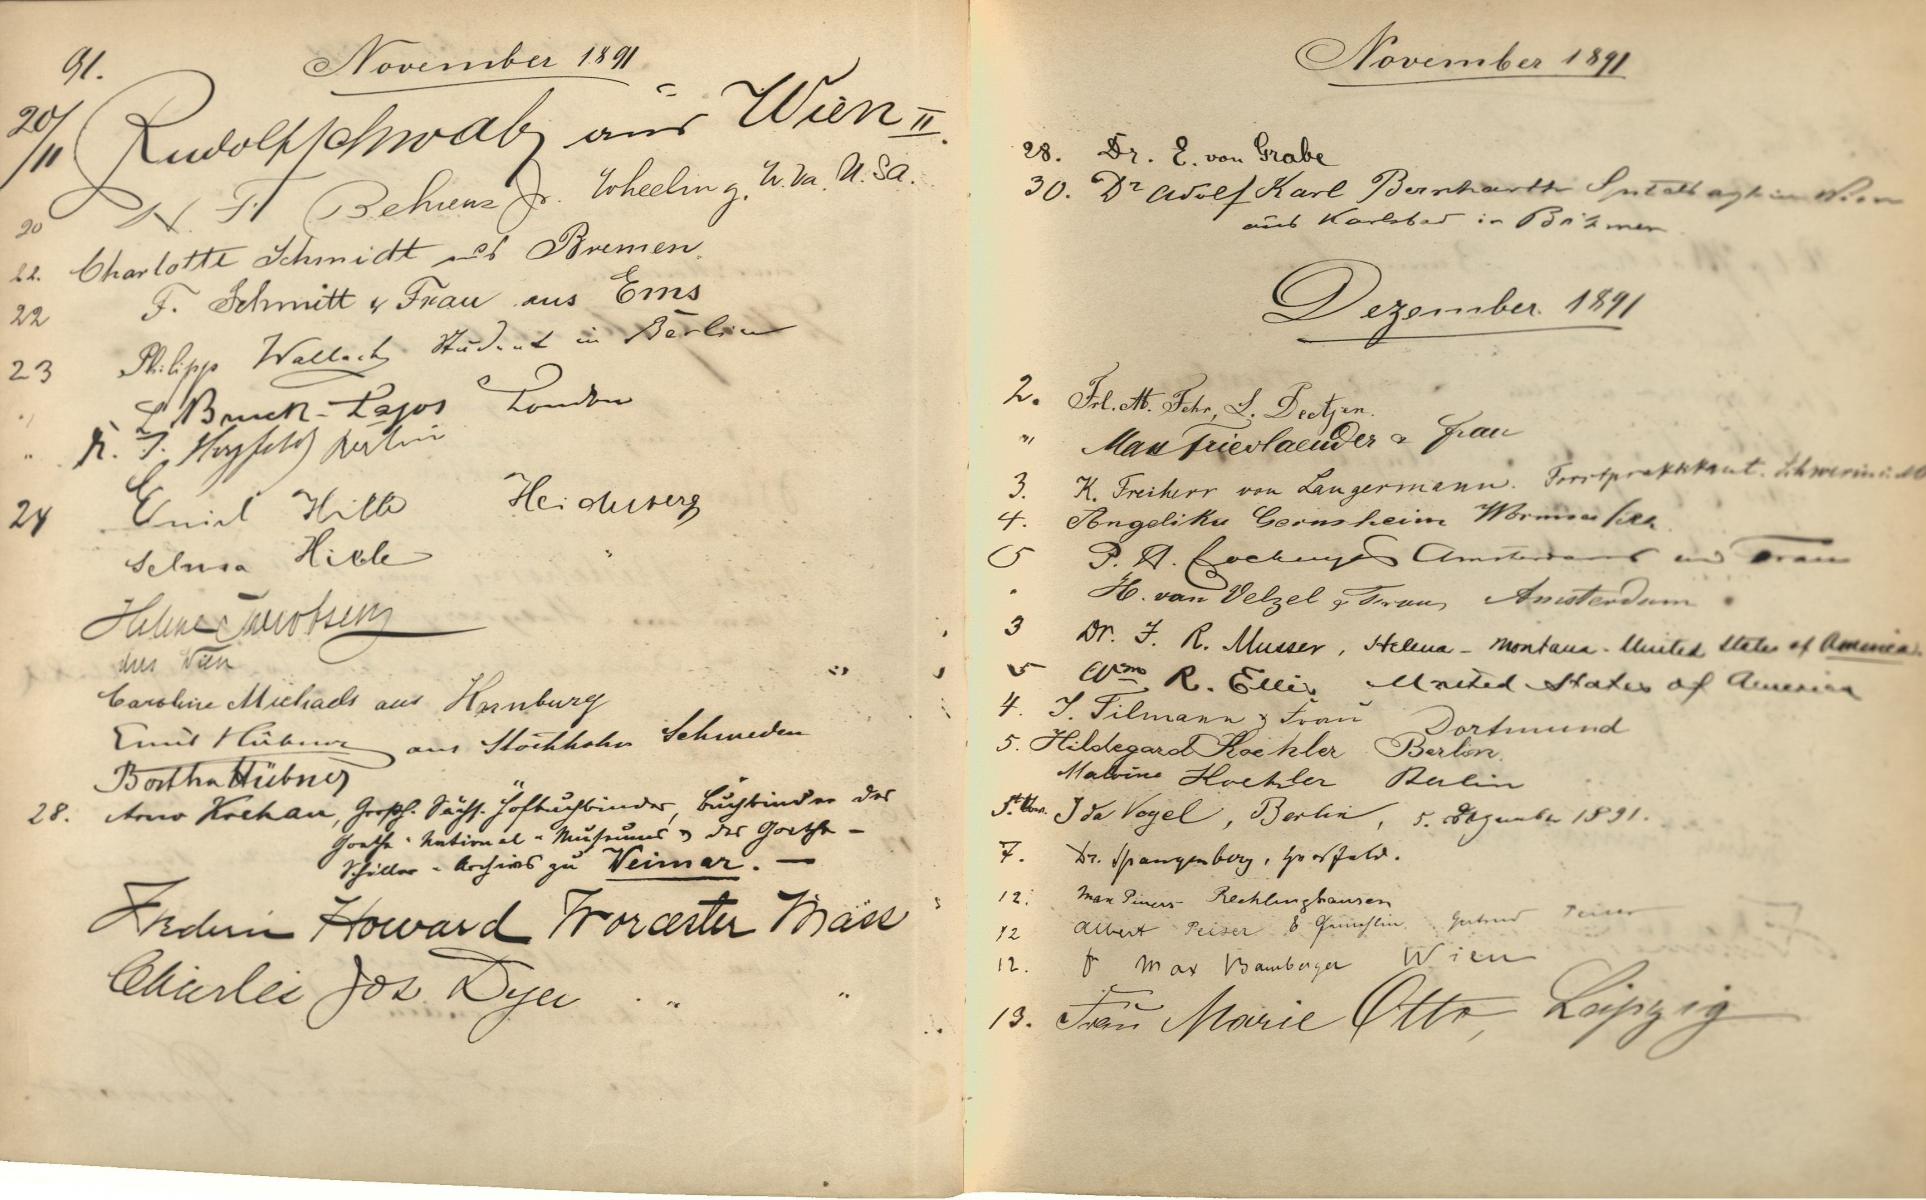 91.
November 1891
20/11 Rudolf Schwab aus Wien II.
20 N. F. Behrens Jr. Wheeling, W. Va. U.S.A.
22. Charlotte Schmidt aus Bremen.
22 F. Schmitt & Frau aus Ems
23 Philipp Wallach Student in Berlin
" L Bruck-Lajos London
" Berlin
24 Emil Hille Heidelberg
Selma Hille "
Helene Jacobsen
aus Wien
Caroline Michaels aus Hamburg
Emil Hübner aus Stockholm Schweden
Bertha Hübner
28. Arno Krehan, Großh. Sächs. Hofbuchbinder, Buchbinder des
Goethe-National-Museums & des Goethe-
Schiller-Archivs zu Weimar. —
Howard Worcester Mass
Charles Jos. Dyer " "
November 1891
28. Dr. E. von Grabe
30. Dr Adolf Karl Bernhardt Wien
aus Karlsbad in Böhmen
Dezember 1891
2. Frl. M. Fehr, L. Deetjen.
" Max Friedlaender & Frau
3. K. Freiherr von Langermann. Forstpraktikant. Schwerin i. M.
4. Angelika Gernsheim Worms
5 P. A. Amsterdam und Frau
" H. van Velzel & Frau Amsterdam
3 Dr. F. R. Musser, Helena - Montana - United States of America.
5 Wm R. Ellis United States of America
4. J. Tilmann & Frau Dortmund
5. Hildegard Koehler Berlin.
Malvine Koehler Berlin
5. Ida Vogel, Berlin, 5. Dezember 1891.
7. Dr. Spangenberg, Hersfeld.
12. Max Recklinghausen
12 Albert Peiser Gertrud Peiser
12. Max Bamberger Wien
13. Frau Marie Otto, Leipzig